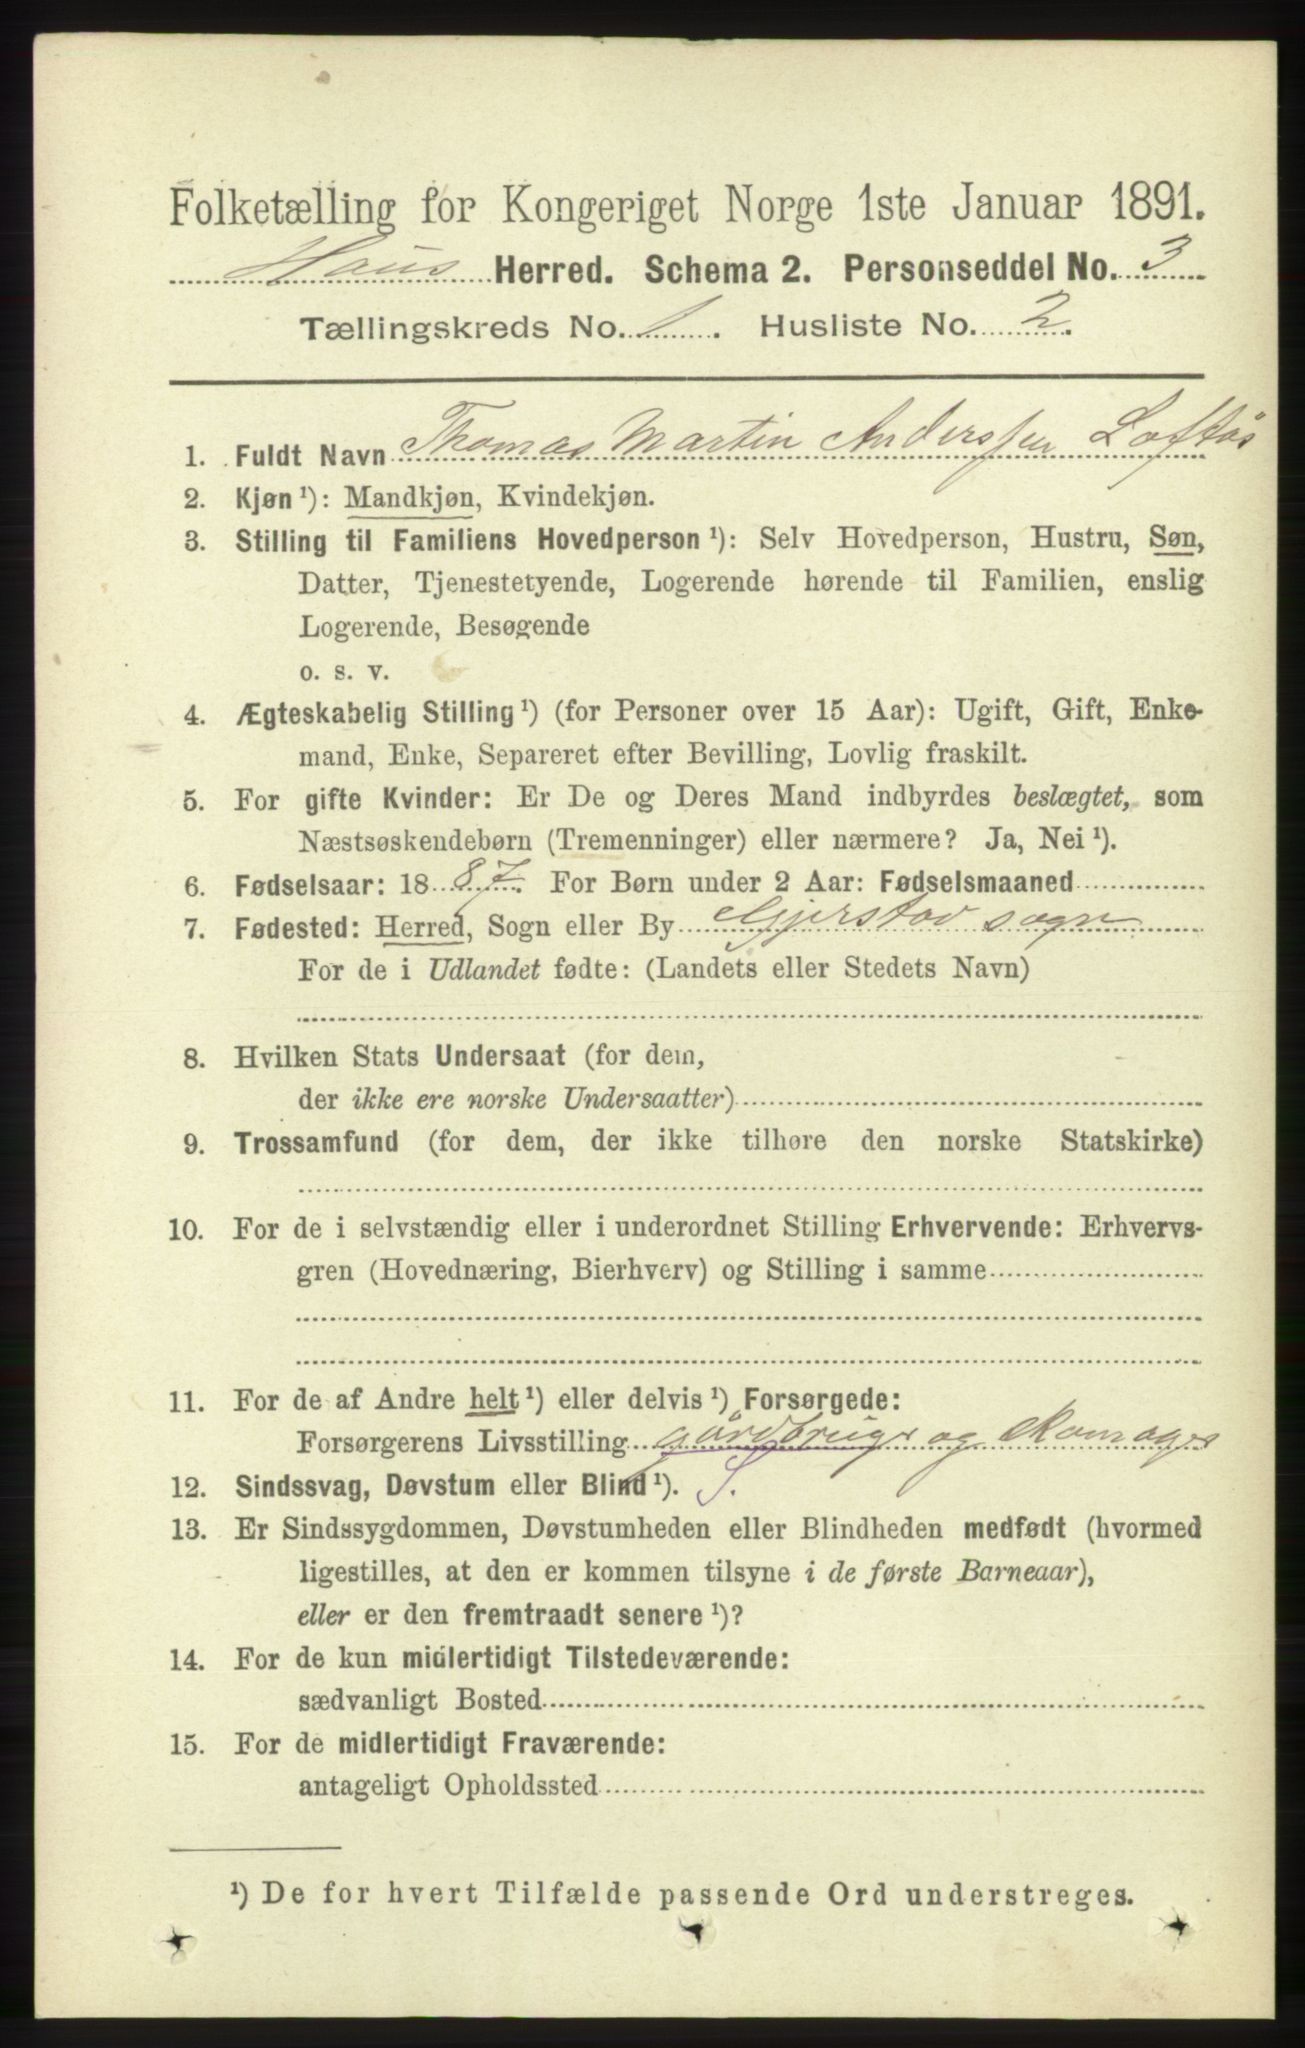 Folketælling for Kongeriget Norge 1ste Januar 1891.
Haus Herred. Schema 2. Personseddel No. 3
Tællingskreds No. 1. Husliste No. 2.
1. Fuldt Navn Thomas Martin Anderssen Loftås
2. Kjøn ¹): Mandkjøn, Kvindekjøn.
3. Stilling til Familiens Hovedperson ¹): Selv Hovedperson, Hustru, Søn,
Datter, Tjenestetyende, Logerende hørende til Familien, enslig
Logerende, Besøgende
o. s. v.
4. Ægteskabelig Stilling ¹) (for Personer over 15 Aar): Ugift, Gift, Enke-
mand, Enke, Separeret efter Bevilling, Lovlig fraskilt.
5. For gifte Kvinder: Er De og Deres Mand indbyrdes beslægtet, som
Næstsøskendebørn (Tremenninger) eller nærmere? Ja, Nei ¹).
6. Fødselsaar: 1887. For Børn under 2 Aar: Fødselsmaaned
7. Fødested: Herred, Sogn eller By Gjerstad sogn
For de i Udlandet fødte: (Landets eller Stedets Navn)
8. Hvilken Stats Undersaat (for dem,
der ikke ere norske Undersaatter)
9. Trossamfund (for dem, der ikke tilhøre den norske Statskirke)
10. For de i selvstændig eller i underordnet Stilling Erhvervende: Erhvervs-
gren (Hovednæring, Bierhverv) og Stilling i samme
11. For de af Andre helt ¹) eller delvis ¹) Forsørgede:
Forsørgerens Livsstilling gårdbruger og
12. Sindssvag, Døvstum eller Blind ¹). S.
13. Er Sindssygdommen, Døvstumheden eller Blindheden medfødt (hvormed
ligestilles, at den er kommen tilsyne i de første Barneaar),
eller er den fremtraadt senere ¹)?
14. For de kun midlertidigt Tilstedeværende:
sædvanligt Bosted
15. For de midlertidigt Fraværende:
antageligt Opholdssted
¹) De for hvert Tilfælde passende Ord understreges.